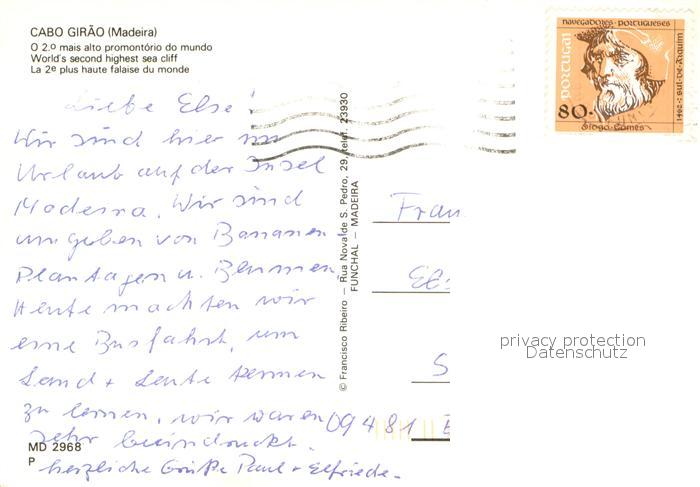 CABO GIRÃO (Madeira)
O 2.º mais alto promontório do mundo
World's second highest sea cliff
La 2e plus haute falaise du monde
Liebe Else!
Wir sind hier im
Urlaub auf der Insel
Madeira. Wir sind
umgeben von Bananen-
Plantagen u. Blumen.
Heute machten wir
eine Busfahrt, um
Land + Leute kennen
zu lernen, wir waren
sehr beeindruckt.
herzliche Grüße Paul + Elfriede.
MD 2968
P
© Francisco Ribeiro — Rua Nova de S. Pedro, 29, telef. 23930
FUNCHAL — MADEIRA
NAVEGADORES PORTUGUESES
PORTUGAL
80.-
Diogo Gomes
1482-: Sul de Arguim
Frau
S
09481
privacy protection
Datenschutz